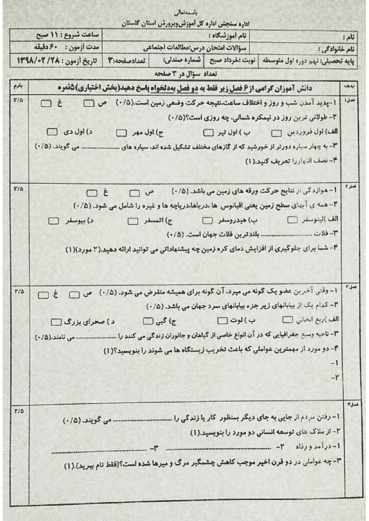 باسمه‌تعالی
اداره سنجش اداره کل آموزش‌وپرورش استان گلستان
نام : نام آموزشگاه : ساعت شروع : ۱۱ صبح
نام خانوادگی : سؤالات امتحان درس:مطالعات اجتماعی مدت آزمون : ۶۰ دقیقه
پایه تحصیلی: نهم دوره اول متوسطه نوبت :خرداد صبح شماره صندلی: تعدادصفحه:۳ تاریخ آزمون : ۱۳۹۸/۰۲/۲۸
تعداد سؤال در ۳ صفحه
ردیف دانش آموزان گرامی از ۶ فصل زیر فقط به دو فصل به‌دلخواه پاسخ دهید(بخش اختیاری)۵نمره بارم
فصل۱ ۱-پدید آمدن شب و روز و اختلاف ساعت،نتیجه حرکت وضعی زمین است.(۰/۵) ص غ ۲/۵
۲- طولانی ترین روز در نیمکره شمالی، چه روزی است؟(۰/۵)
الف) اول فروردین ب) اول تیر ج) اول مهر د) اول دی
۳- به چهار سیاره دورتر از خورشید که از گازهای مختلف تشکیل شده اند، سیاره های ........ می گویند. (۰/۵)
۴- نصف النهار را تعریف کنید.(۱)
فصل ۲ ۱- هوازدگی از نتایج حرکت ورقه های زمین می باشد. (۰/۵) ص غ ۲/۵
۲- همه ی آبهای سطح زمین یعنی اقیانوس ها ،دریاها،دریاچه ها و غیره را شامل می شود. (۰/۵)
الف )لیتوسفر ب) هیدروسفر ج) اتمسفر د) بیوسفر
۳- فلات ........ بلندترین فلات جهان است. (۰/۵)
۴- شما برای جلوگیری از افزایش دمای کره زمین چه پیشنهاداتی می توانید ارائه دهید.(۲ مورد)(۱)
فصل ۳ ۱- وقتی آخرین عضو یک گونه می میرد، آن گونه برای همیشه منقرض می شود. (۰/۵) ص غ ۲/۵
۲- کدام یک از بیابانهای زیر جزء بیابانهای سرد جهان می باشد. (۰/۵)
الف )ربع الخالی ب ) لوت ج) گبی د ) صحرای بزرگ
۳- ناحیه وسیع جغرافیایی که در آن انواع خاصی از گیاهان و جانوران زندگی می کنند را ........ می نامند.(۰/۵)
۴- دو مورد از مهمترین عواملی که باعث تخریب زیستگاه ها می شوند را بنویسید؟(۱)
۱-
۲-
فصل۴ ۲/۵
۱- رفتن مردم از جایی به جای دیگر بمنظور کار یا زندگی را ........ می گویند. (۰/۵)
۲- از ملاک های توسعه انسانی دو مورد را بنویسید.(۱)
۱- درآمد و رفاه ۲- ........ ۳- ........
۳- چه عواملی در دو قرن اخیر موجب کاهش چشمگیر مرگ و میرها شده است؟(فقط نام ببرید).(۱)